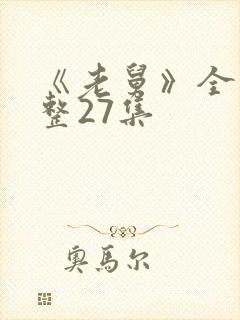 《老舅》全
整27集
奥馬尔